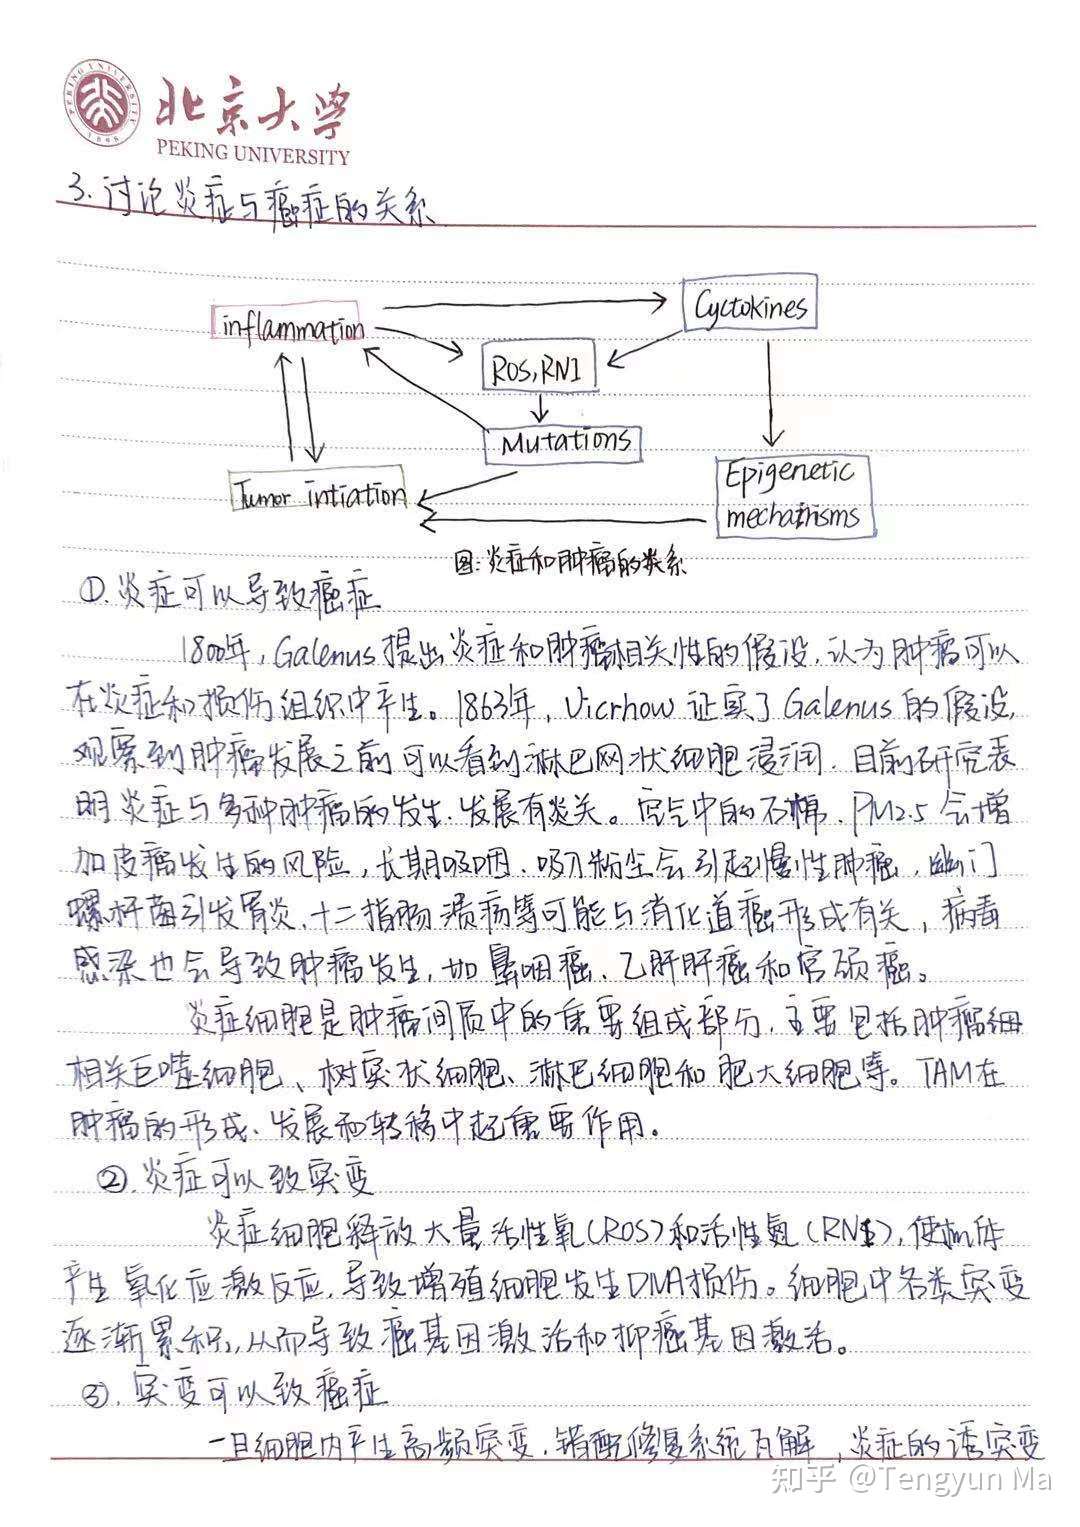 北京大学
PEKING UNIVERSITY
3.讨论炎症与癌症的关系
inflammation
Cyctokines
ROS,RNI
Mutations
Tumor intiation
Epigenetic
mechanisms
图:炎症和肿瘤的关系
①.炎症可以导致癌症
1800年,Galenus提出炎症和肿瘤相关性的假设,认为肿瘤可以
在炎症和损伤组织中产生。1863年,Vicrhow证实了Galenus的假设,
观察到肿瘤发展之前可以看到淋巴网状细胞浸润.目前研究表
明炎症与多种肿瘤的发生、发展有关。空气中的石棉、PM2.5会增
加皮瘤发生的风险,长期吸烟、吸入粉尘会引起慢性肿癌,幽门
螺杆菌引发胃炎、十二指肠溃疡等可能与消化道癌形成有关,病毒
感染也会导致肿瘤发生,如鼻咽癌、乙肝肝癌和宫颈癌。
炎症细胞是肿瘤间质中的重要组成部分,主要包括肿瘤细
相关巨噬细胞、树突状细胞、淋巴细胞和肥大细胞等。TAM在
肿瘤的形成、发展和转移中起重要作用。
②.炎症可以致突变
炎症细胞释放大量活性氧(ROS)和活性氮(RNI),使机体
产生氧化应激反应,导致增殖细胞发生DNA损伤。细胞中各类突变
逐渐累积,从而导致癌基因激活和抑癌基因激活。
③.突变可以致癌症
一旦细胞内产生高频突变,错配修复系统瓦解,炎症的诱突变
知乎 @Tengyun Ma